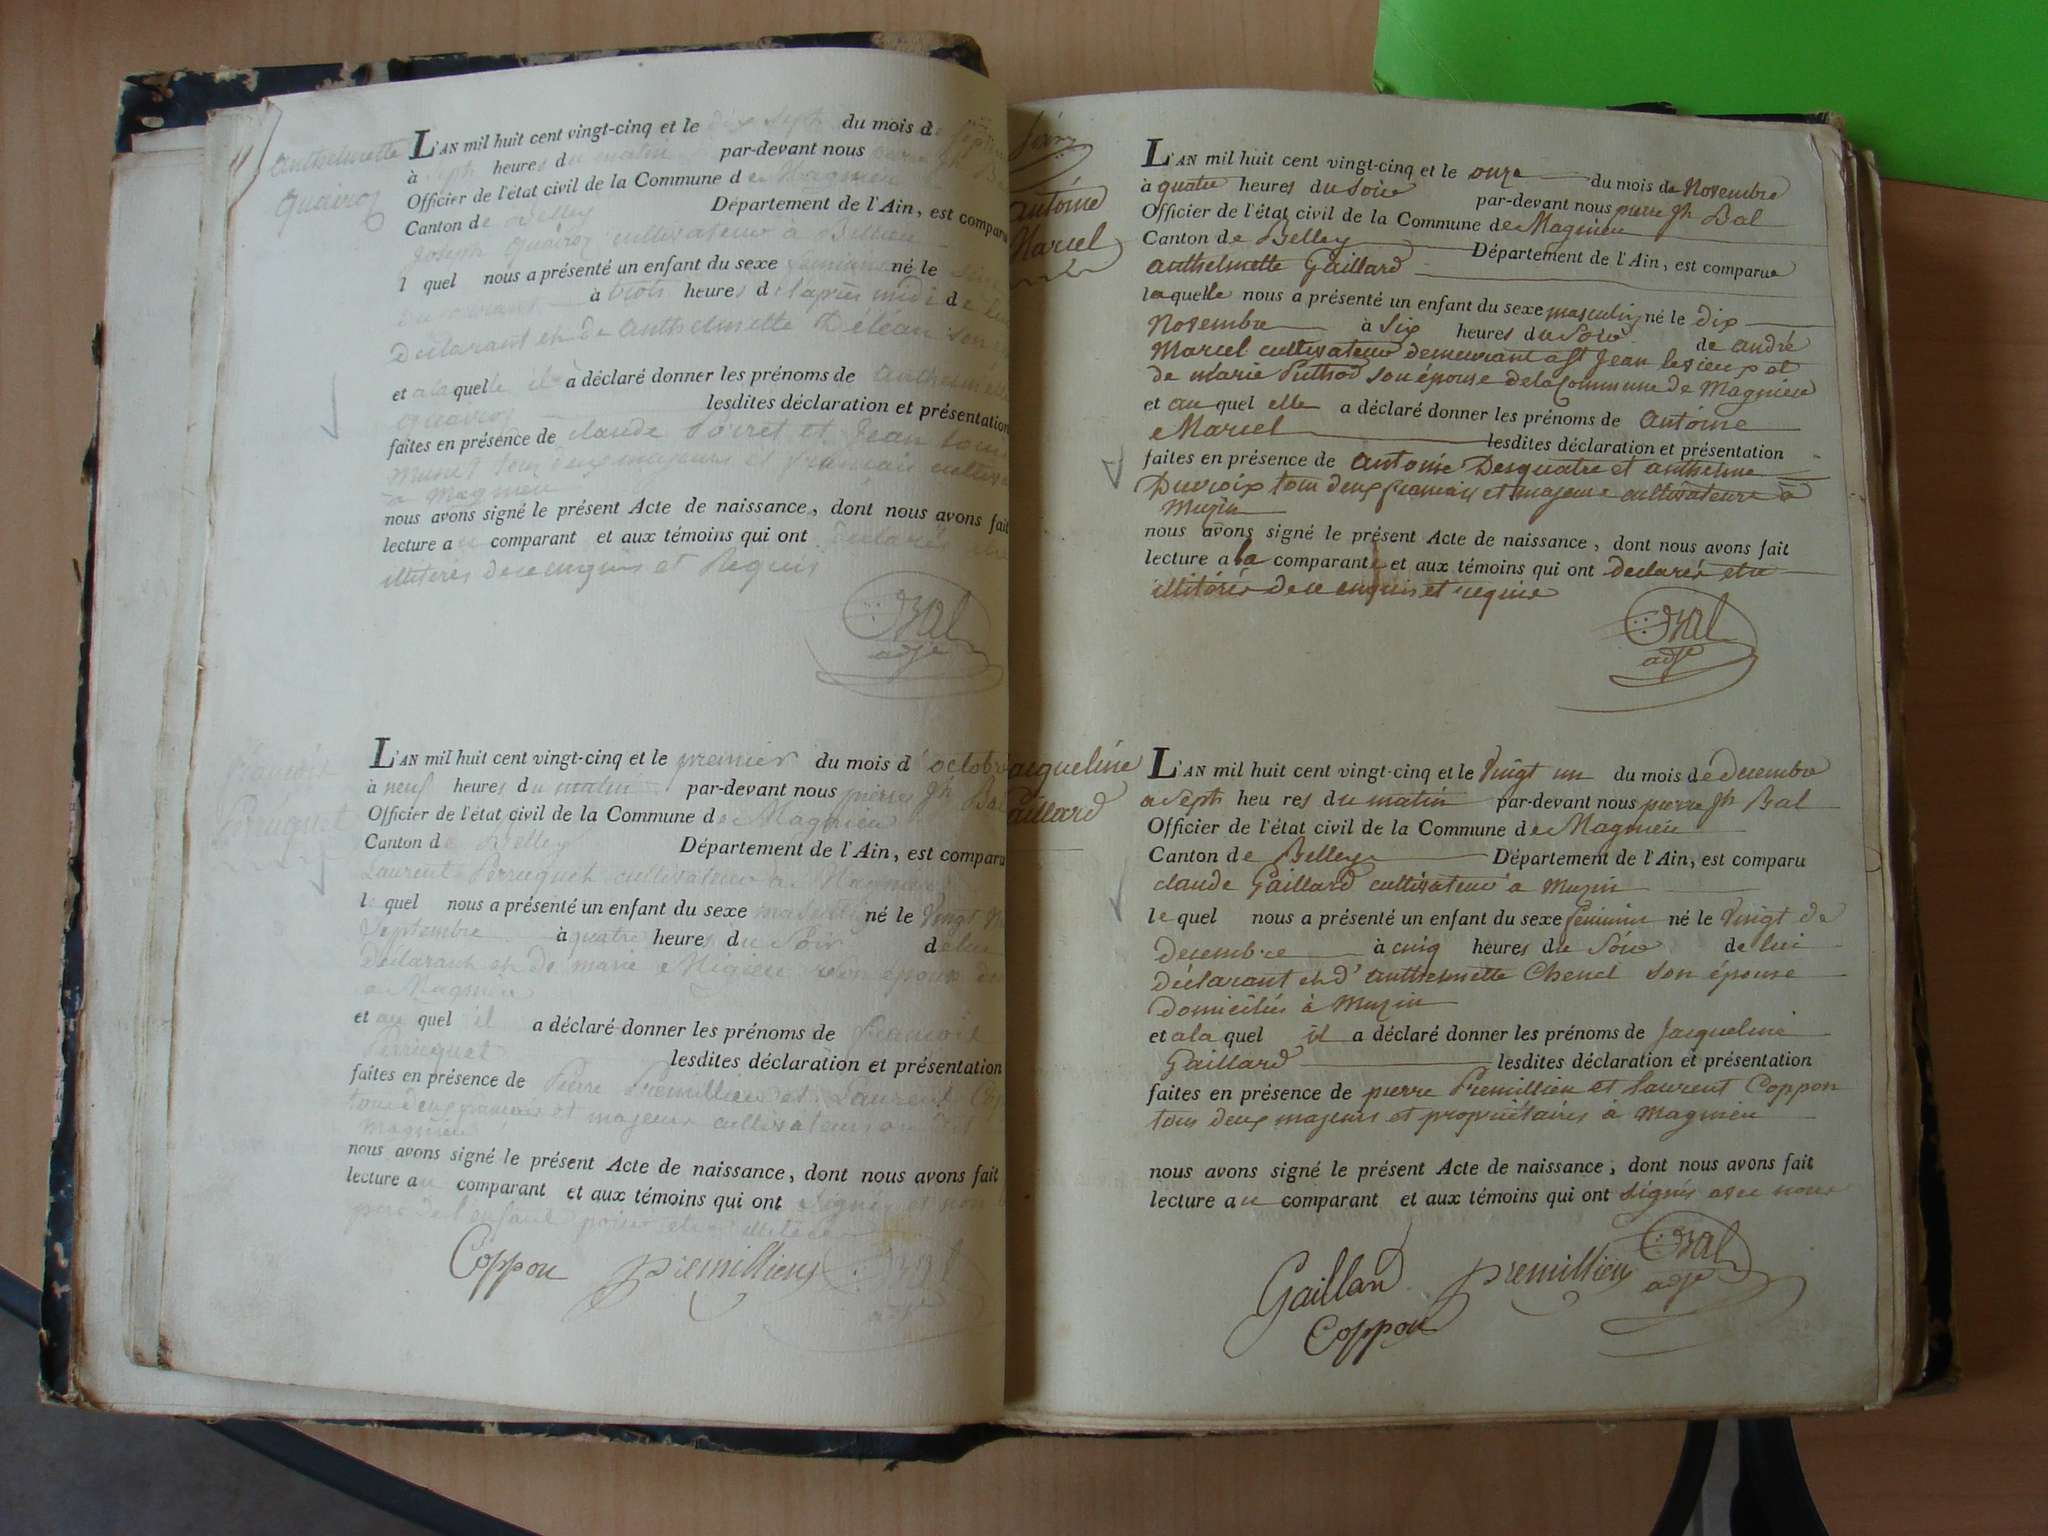 11
anthelmette
Quairoz
L'AN mil huit cent vingt-cinq et le dix Sept du mois de Sept
à Sept heures du matin par-devant nous pierre Jh
Officier de l'état civil de la Commune de Magnieu
Canton de Belley Département de l'Ain, est comparu
Joseph Quairoz cultivateur à
l quel nous a présenté un enfant du sexe né le
du courant à trois heures de l'après midi de lui
Déclarant et de anthelmette Déléan son
et a la quelle il à déclaré donner les prénoms de anthelmette
Quairoz lesdites déclaration et présentation
faites en présence de claude et Jean
tous deux majeurs et français
à Magnieu
nous avons signé le présent Acte de naissance, dont nous avons fait
lecture au comparant et aux témoins qui ont declarés
illiterés de ce enquis et Requis
Bal
adjt
françois
Perruquet
L'AN mil huit cent vingt-cinq et le premier du mois d'octob
à neuf heures du matin par-devant nous pierre Jh Bal
Officier de l'état civil de la Commune de Magnieu
Canton de Belley Département de l'Ain, est comparu
Laurent Perruquet cultivateur a Magnieu
le quel nous a présenté un enfant du sexe masculin né le Vingt
Septembre à quatre heures du Soir de lui
Déclarant et de marie son épouse
a Magnieu
et au quel il a déclaré donner les prénoms de françois
Perruquet lesdites déclaration et présentation
faites en présence de Pierre Premillieu et Laurent
tous deux français et majeurs cultivateurs
Magnieu
nous avons signé le présent Acte de naissance, dont nous avons fait
lecture au comparant et aux témoins qui ont Signé et non
pere de l'enfant
Coppon premillieu Bal
adjt
antoine
Marcel
L'AN mil huit cent vingt-cinq et le onze du mois de Novembre
à quatre heures du Soir par-devant nous pierre Jh Bal
Officier de l'état civil de la Commune de Magnieu
Canton de Belley Département de l'Ain, est comparue
anthelmette Gaillard
laquelle nous a présenté un enfant du sexe masculin né le dix
Novembre à Six heures du Soir de andré
Marcel cultivateur demeurant a St Jean
de marie Puthod son épouse de la Commune de Magnieu
et au quel elle a déclaré donner les prénoms de antoine
Marcel lesdites déclaration et présentation
faites en présence de antoine Desquatre et anthelme
Ducroix tous deux français et majeurs cultivateurs à
Muzin
nous avons signé le présent Acte de naissance, dont nous avons fait
lecture a la comparante et aux témoins qui ont declarés etre
illitérés de ce enquis et requis
Bal
adjt
acqueline
aillard
L'AN mil huit cent vingt-cinq et le Vingt un du mois de decembre
a Sept heures du matin par-devant nous pierre Jh Bal
Officier de l'état civil de la Commune de Magnieu
Canton de Belley Département de l'Ain, est comparu
claude Gaillard cultivateur a Muzin
le quel nous a présenté un enfant du sexe féminin né le Vingt de
decembre à cinq heures du Soir de lui
Déclarant et d'anthelmette Chenel son épouse
domiciliés à Muzin
et a la quel il a déclaré donner les prénoms de Jacqueline
Gaillard lesdites déclaration et présentation
faites en présence de pierre Premillieu et laurent Coppon
tous deux majeurs et propriétaires à magnieu
nous avons signé le présent Acte de naissance, dont nous avons fait
lecture au comparant et aux témoins qui ont signés avec nous
Gaillard premillieu Bal
Coppon adjt